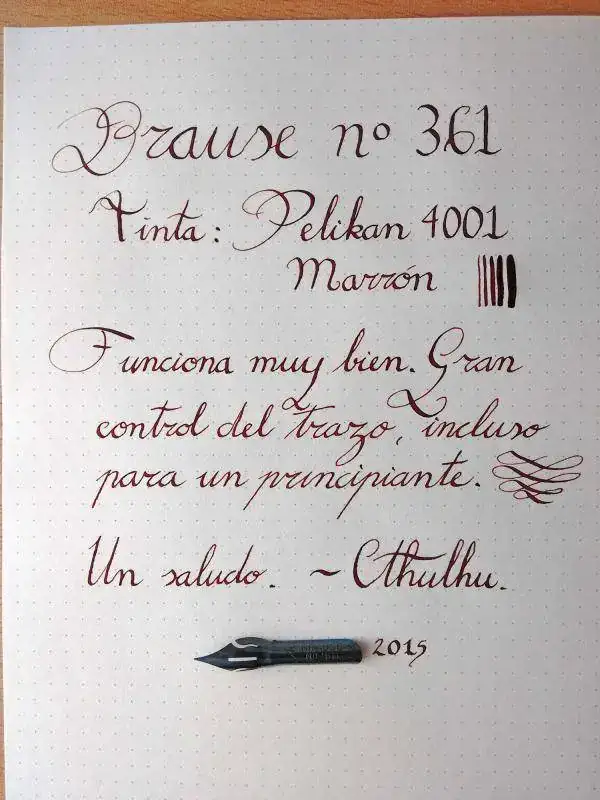 Brause nº 361
Tinta: Pelikan 4001
Marrón
Funciona muy bien. Gran
control del trazo, incluso
para un principiante.
Un saludo. ~ Cthulhu.
2015